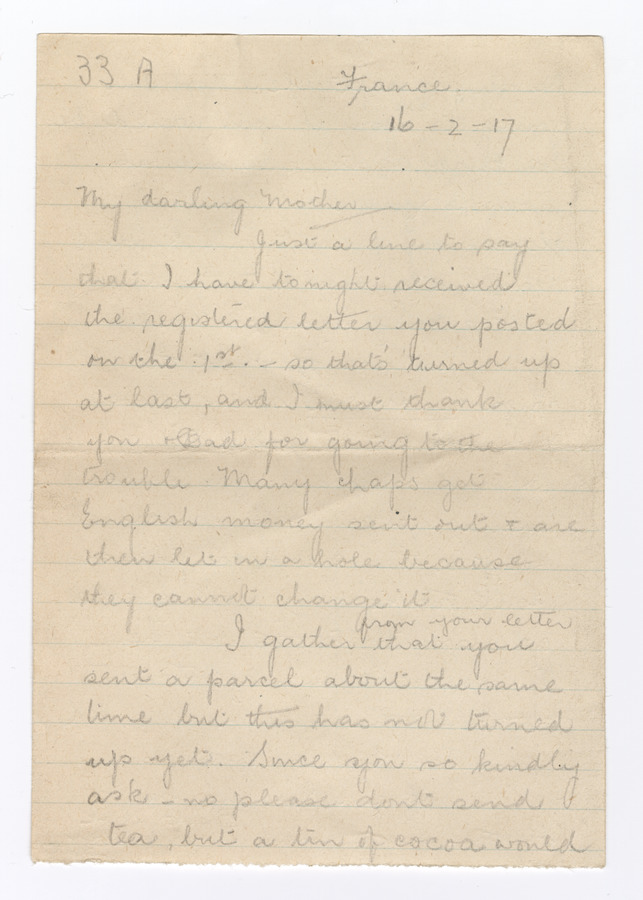 33 A
France.
16-2-17
My darling Mother
Just a line to say
that I have tonight received
the registered letter you posted
on the 1st. - so that's turned up
at last, and I must thank
you & Dad for going to the
trouble. Many chaps get
English money sent out & are
then let in a hole because
they cannot change it
from your letter
I gather that you
sent a parcel about the same
time but this has not turned
up yet. Since you so kindly
ask - no please dont send
tea, but a tin of cocoa would